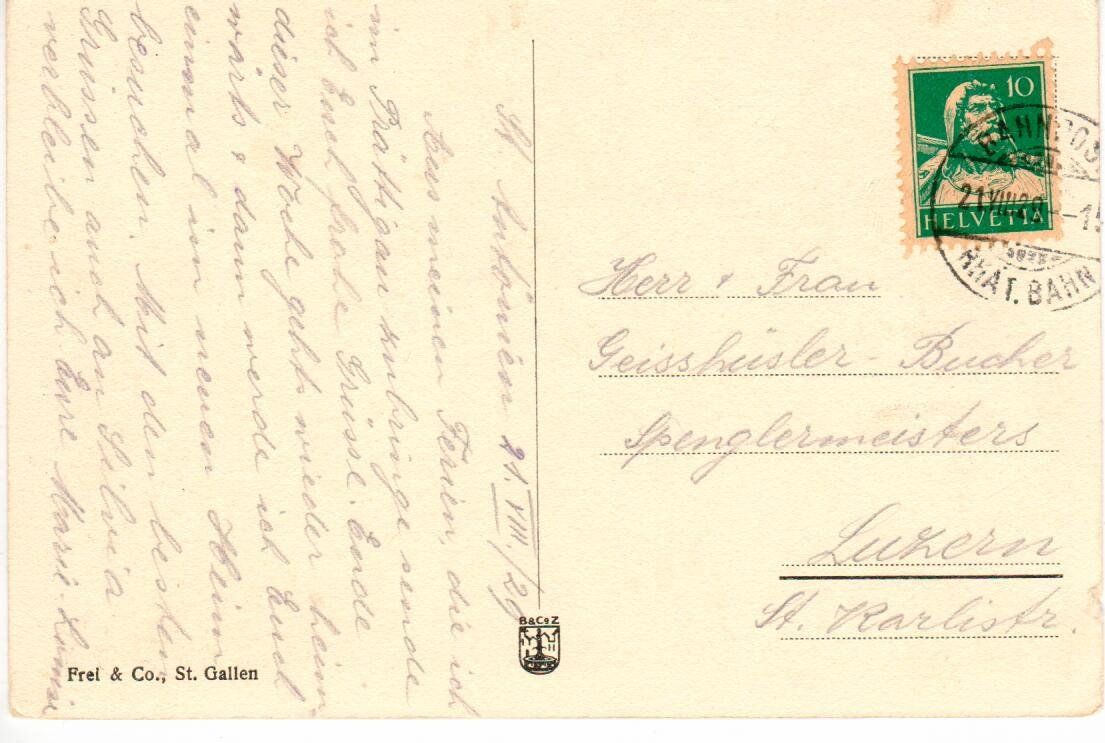 St. Antönien 21. VIII./29
Aus meinen Ferien, die ich
im Prättigau zubringe sende
ich Euch frohe Grüsse. Ende
dieser Woche gehts wieder heim-
wärts & dann werde ich Euch
einmal im neuen Heim
besuchen. Mit den besten
Grüssen auch an Silvia
verbleibe ich Eure Marie-Louise
Frei & Co., St. Gallen
B&CoZ
10
HELVETIA
BAHNPOS
21.VIII.29 - 15
RHÄT. BAHN
Herr & Frau
Geisshüsler - Bucher
Spenglermeisters
Luzern
St. Karlistr.